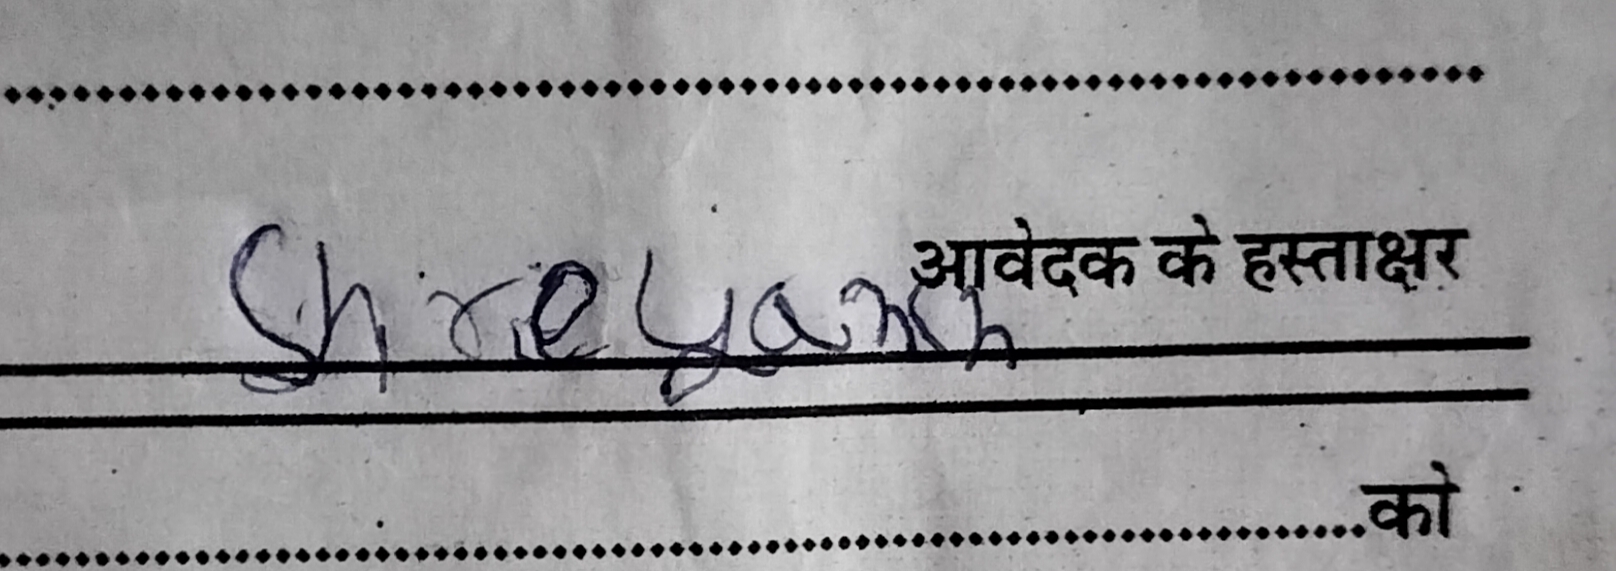 आवेदक के हस्ताक्षर
Shreyansh
को